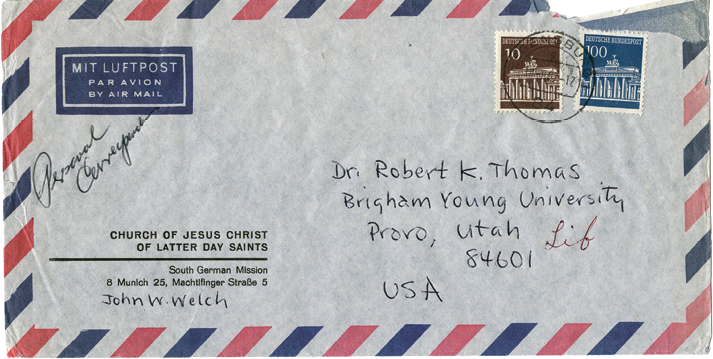 MIT LUFTPOST
PAR AVION
BY AIR MAIL
DEUTSCHE BUNDESPOST
10
DEUTSCHE BUNDESPOST
100
Personal
CHURCH OF JESUS CHRIST
OF LATTER DAY SAINTS
South German Mission
8 Munich 25, Machtlfinger Straße 5
John W. Welch
Dr. Robert K. Thomas
Brigham Young University
Provo, Utah
Lib
84601
USA